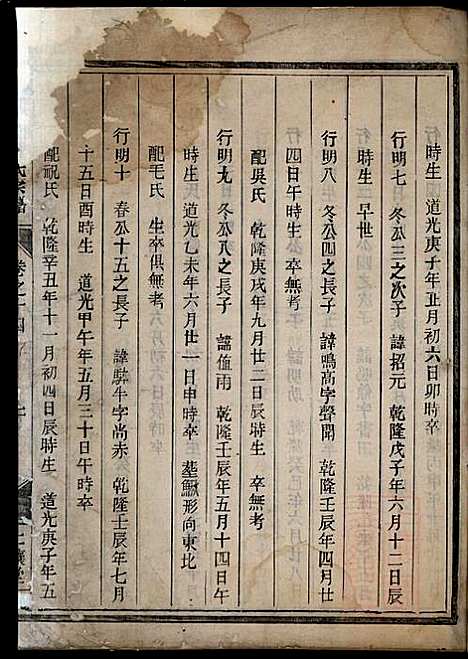 時生 道光庚子年正月初六日卯時卒
行明七 冬公三之次子 諱招元 乾隆戊子年六月十二日辰
時生 早世
行明八 冬公四之長子 諱鳴高字聲聞 乾隆壬辰年四月廿
四日午時生 卒無考
配吳氏 乾隆庚戌年九月廿二日辰時生 卒無考
行明九 冬公八之長子 諱值雨 乾隆壬辰年五月十四日午
時生 道光乙未年六月廿一日申時卒 塟 形向東北
配毛氏 生卒俱無考
行明十 春公十五之長子 諱騂牛字尚赤 乾隆壬辰年七月
十五日酉時生 道光甲午年五月三十日午時卒
配祝氏 乾隆辛丑年十一月初四日辰時生 道光庚子年五
氏宗譜 卷之十四